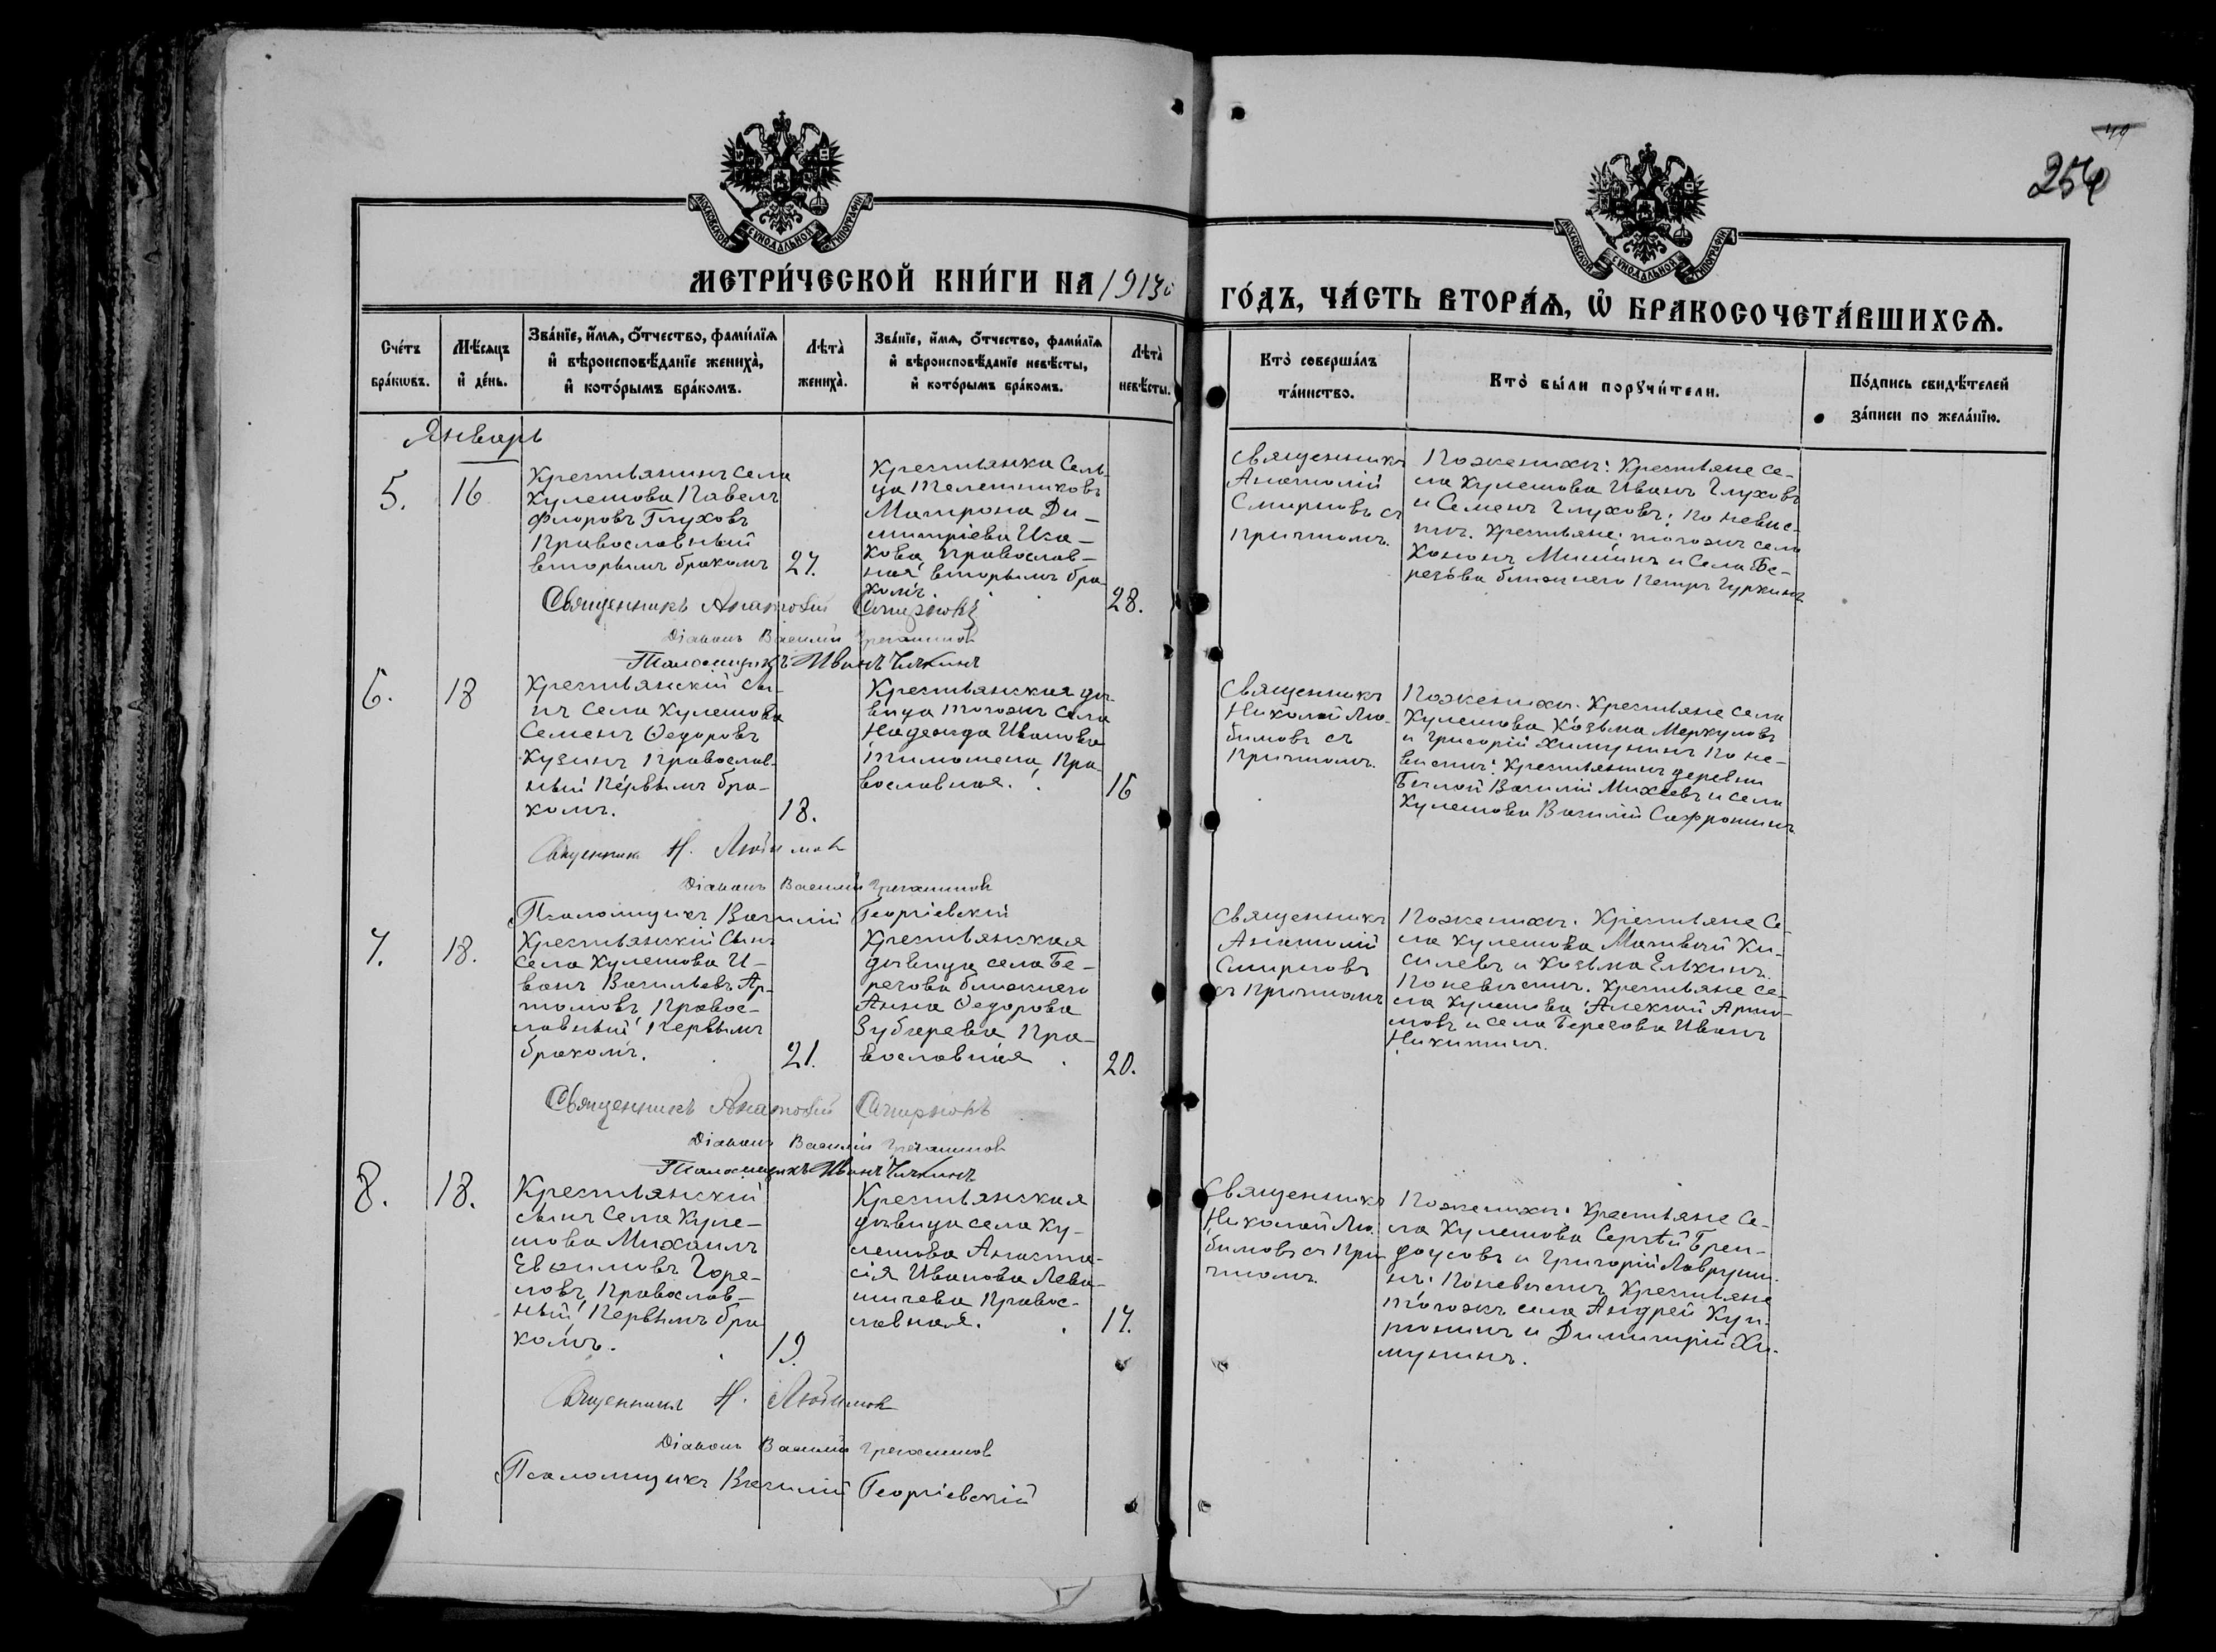 49
254
МОСКОВСКОЙ СѴНОДАЛЬНОЙ ТИПОГРАФІИ
МОСКОВСКОЙ СѴНОДАЛЬНОЙ ТИПОГРАФІИ
МЕТРИ́ЧЕСКОЙ КНИ́ГИ НА 1913й
ГО́ДЪ, ЧА́СТЬ ВТОРА́Ѧ, Ѡ҆ БРАКОСОЧЕТА́ВШИХСѦ.
Счетъ
бра́кѡвъ.
Мѣ́сѧцъ
и҆ де́нь.
Зва́нїе, и҆́мѧ, ѻ҆́тчество, фами́лїѧ
и҆ вѣроисповѣ́данїе жениха̀,
и҆ кото́рымъ бра́комъ.
Лѣта̀
жениха̀.
Зва́нїе, и҆́мѧ, ѻ҆́тчество, фами́лїѧ
и҆ вѣроисповѣ́данїе невѣ́сты,
и҆ кото́рымъ бра́комъ.
Лѣта̀
невѣ́сты.
Кто̀ соверша́лъ
та́инство.
Кто̀ бы́ли порꙋчи́тели.
По́дпись свидѣ́телей
за́писи по жела́нїю.
Январь
5.
16
Крестьянинъ села
Кулешова Павелъ
Флоровъ Глуховъ
Православный
вторымъ бракомъ
27.
Крестьянка Сель
ца Телешниковъ
Матрона Ди-
митріева Иса-
кова, православ-
ная вторымъ бра
комъ.
28.
Священникъ
Анатолій
Смирновъ съ
причтомъ.
По женихѣ: Крестьяне се-
ла Кулешова Иванъ Глуховъ
и Семенъ Глуховъ; По невѣс-
тѣ. Крестьяне: тогожъ села
Кононъ Мишинъ и Села Бе-
резова ближняго Петръ Гуркинъ
Священникъ Анатолій Смирновъ
Діаконъ Василій
Псаломщикъ Иванъ
6.
18
Крестьянскій сы-
нъ села Кулешова
Семенъ Ѳедоровъ
Кузинъ Православ-
ный Первымъ бра-
комъ.
18.
Крестьянская дѣ-
вица тогожъ села
Надежда Иванова
Тимошена, Пра-
вославная.
16
Священникъ
Николай Лю-
бимовъ съ
Причтомъ.
По женихѣ. Крестьяне села
Кулешова Козьма Меркуловъ
и Григорій Химунинъ По не-
вѣстѣ: Крестьянинъ деревни
Василій Михеевъ и села
Кулешова Василій Сафронинъ
Священникъ Н. Любимов
Діаконъ Василій
Псаломщикъ Василій Георгіевскій
7.
18.
Крестьянскій Сынъ
села Кулешова И-
ванъ Васильевъ Ар-
тамовъ, Правос-
лавный Первымъ
бракомъ.
21.
Крестьянская
дѣвица села Бе-
резова ближнего
Анна Ѳедорова
Зубарева Пра-
вославная.
20.
Священникъ
Анатолій
Смирновъ
съ Причтомъ
По женихѣ. Крестьяне Се-
ла Кулешова Матвѣй Ки-
силевъ и Козьма Елькинъ.
По невѣстѣ. Крестьяне се-
ла Кулешова Алексѣй Арта-
мовъ и села Березова Иванъ
Никитинъ.
Священникъ Анатолій Смирновъ
Діаконъ Василій
Псаломщикъ Иванъ
8.
18.
Крестьянскій
сынъ Села Куле-
шова Михаилъ
Евѳимовъ Горе-
ловъ, Православ-
ный Первымъ бра
комъ.
19.
Крестьянская
дѣвица села Ку-
лешова Анаста-
сія Иванова Лева-
шичева Правос-
лавная.
17.
Священникъ
Николай Лю-
бимовъ съ При
чтомъ.
По женихѣ: Крестьяне Се-
ла Кулешова Сергѣй Брен-
доусовъ и Григорій Лаврухи-
нъ: По невѣстѣ Крестьяне
тогожъ села Андрей Куп-
и Димитрій Хи-
мунинъ.
Священникъ Н. Любимов
Діаконъ Василій
Псаломщикъ Василій Георгіевскій